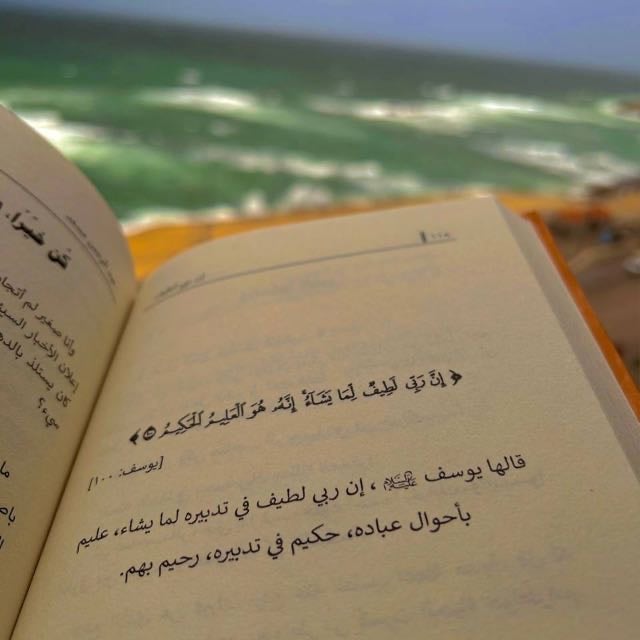 ١١٨
﴿ إِنَّ رَبِّي لَطِيفٌ لِمَا يَشَاءُ إِنَّهُ هُوَ الْعَلِيمُ الْحَكِيمُ ﴾
[يوسف: ١٠٠]
قالها يوسف ﵇، إن ربي لطيف في تدبيره لما يشاء، عليم
بأحوال عباده، حكيم في تدبيره، رحيم بهم.
كن خيرا،
وأنا صغير لم أتجا
إعلان الأخبار السي
كان يستلذ بالده
سيء؟
ما